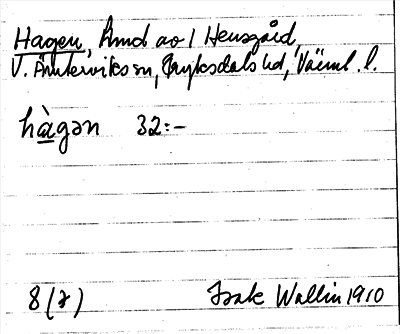 Hagen, hmd av 1 Hensgård,
V. Ämterviks sn, Fryksdals hd, Värml. l.
hàgən 32:-
8 (7) Isak Wallin 1910